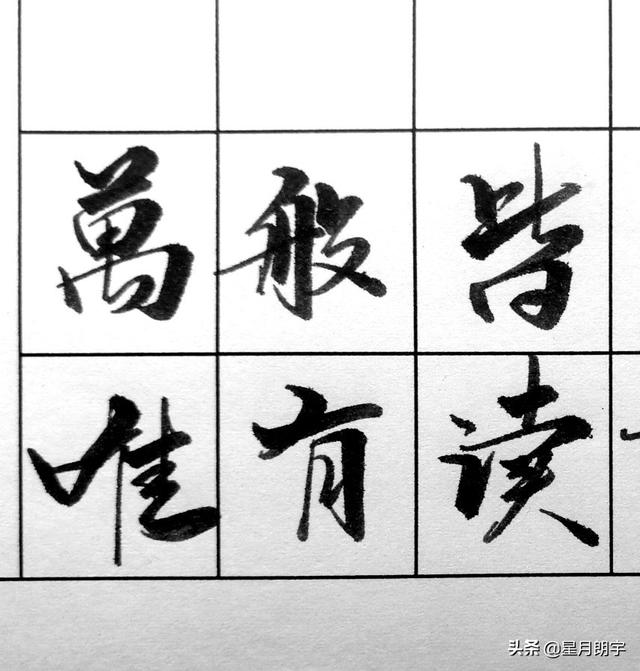 萬般皆
唯有读
头条 @星月朗宇